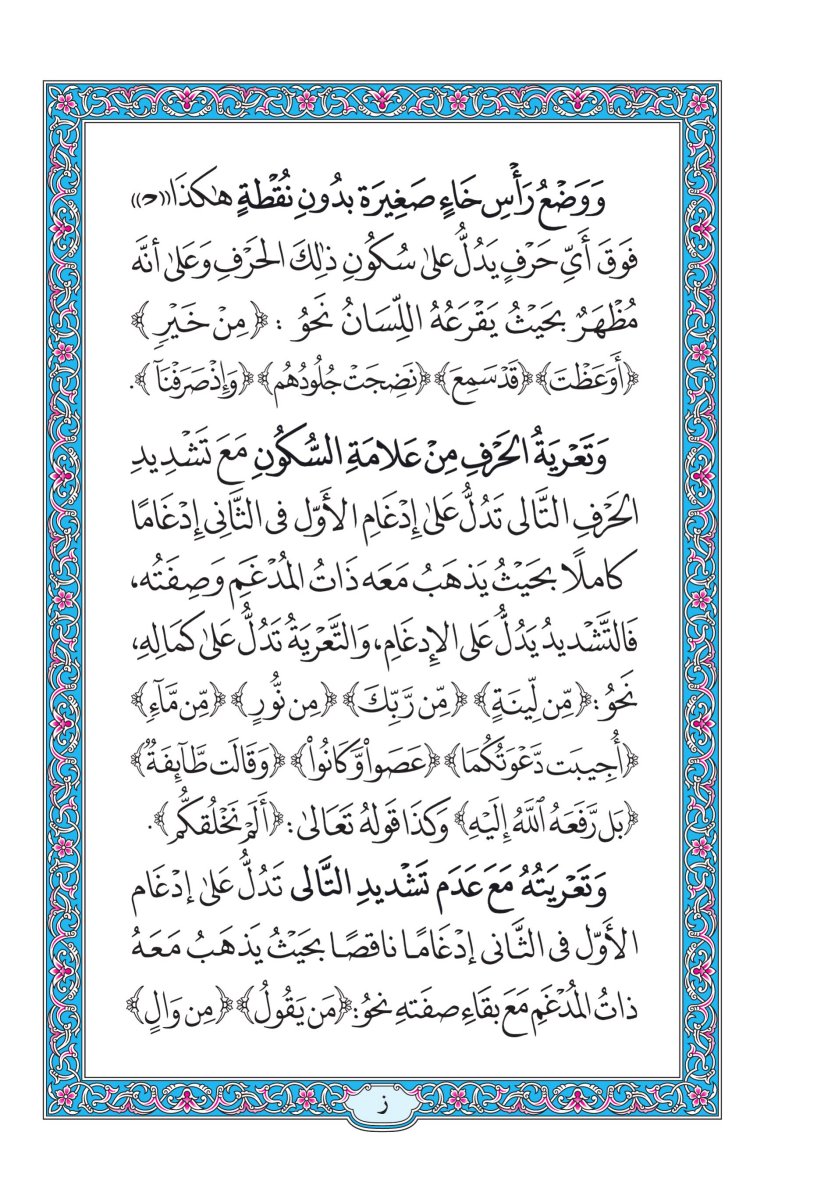 وَوَضْعُ رَأْسِ خَاءٍ صَغِيرَة بدُونِ نُقْطَةٍ هٰكَذَا ((ح))
فَوَقَ أَىِّ حَرْفٍ يَدُلُّ علىٰ سُكُونِ ذٰلِكَ الحَرْفِ وَعَلىٰ أنَّه
مُظْهَرٌ بحَيْثُ يَقْرَعُهُ اللِّسَانُ نَحْوُ : ﴿ مِنْ خَيْرٍ ﴾
﴿أَوَعَظْتَ﴾ ﴿قَدْ سَمِعَ﴾ ﴿نَضِجَتْ جُلُودُهُم﴾ ﴿وَإِذْ صَرَفْنَآ﴾.
وَتَعْرِيَةُ الحَرْفِ مِنْ عَلامَةِ السُّكُونِ مَعَ تَشْدِيدِ
الحَرْفِ التَّالى تَدُلُّ عَلىٰ إدْغَامِ الأَوَّل فى الثَّانِى إدْغَامًا
كاملًا بحَيْثُ يَذهَبُ مَعَه ذَاتُ المُدْغَمِ وَصِفَتُه،
فَالتَّشْدِيدُ يَدُلُّ عَلى الإِدغَامِ، وَالتَّعْرِيَةُ تَدُلُّ عَلىٰ كمَالِهِ،
نَحْوُ : ﴿مِّن لِّينَةٍ﴾ ﴿مِّن رَّبِّكَ﴾ ﴿مِن نُّورٍ﴾ ﴿مِّن مَّآءٍ﴾
﴿أُجِيبَت دَّعْوَتُكُمَا﴾ ﴿عَصَواْ وَّكَانُواْ﴾ ﴿وَقَالَت طَّآئِفَةٌ﴾
﴿بَل رَّفَعَهُ ٱللَّهُ إِلَيْهِ﴾ وَكذَا قَولُهُ تَعَالىٰ: ﴿أَلَمْ نَخْلُقكُّم﴾.
وَتَعْرِيَتُهُ مَعَ عَدَم تَشْديدِ التَّالى تَدُلُّ عَلىٰ إدْغَام
الأَوَّل فى الثَّانى إدْغَامًا ناقصًا بحَيْثُ يَذهَبُ مَعَهُ
ذاتُ المُدْغَمِ مَعَ بقَاءِ صفَتهِ نحوُ: ﴿مَن يَقُولُ﴾ ﴿مِن وَالٍ﴾
ز